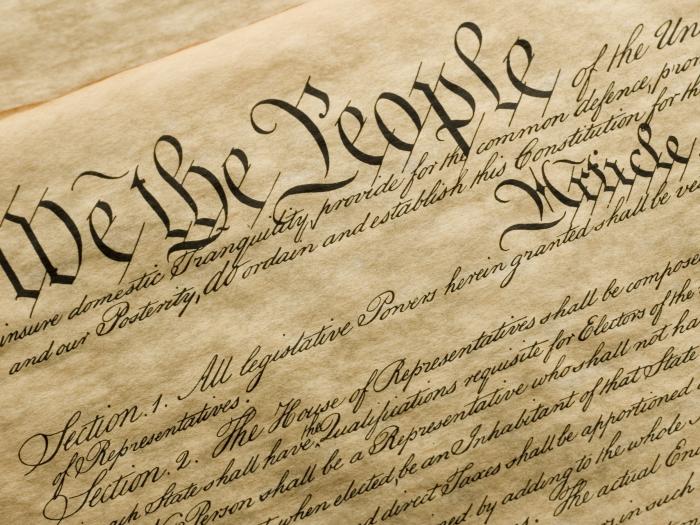 We the People of the Un
insure domestic Tranquility, provide for the common defence, pro
and our Posterity, do ordain and establish this Constitution for th
Article
Section. 1. All legislative Powers herein granted shall be ve
of Representatives.
Section. 2. The House of Representatives shall be compose
ach State shall have the Qualifications requisite for Electors of the
Person shall be a Representative who shall not ha
when elected, be an Inhabitant of that State
d direct Taxes shall be apportioned
ed by adding to the whole
The actual Enu
in such